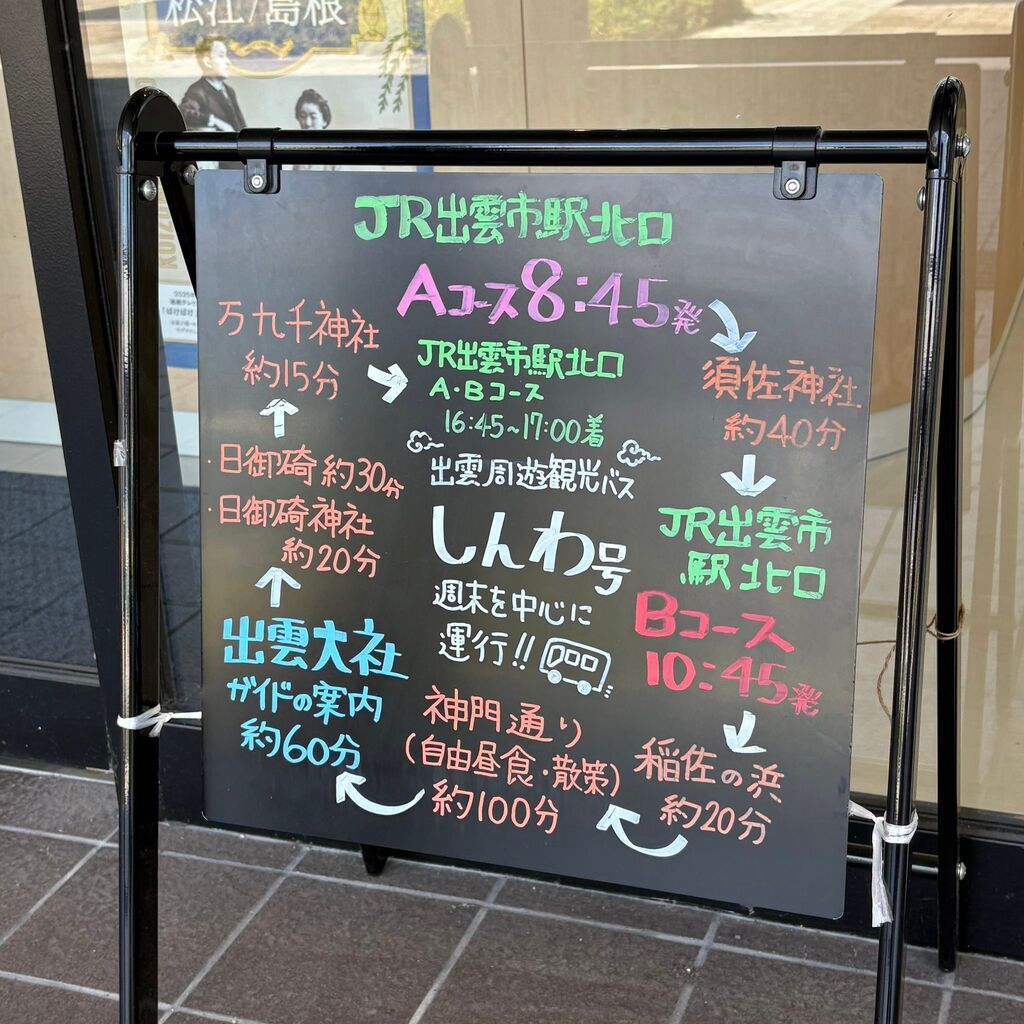 松江/島根
JR出雲市駅北口
Aコース8:45発
須佐神社
約40分
JR出雲市
駅北口
Bコース
10:45発
稲佐の浜
約20分
神門通り
(自由昼食・散策)
約100分
出雲大社
ガイドの案内
約60分
・日御碕 約30分
・日御碕神社
約20分
万九千神社
約15分
JR出雲市駅北口
A・Bコース
16:45~17:00着
出雲周遊観光バス
しんわ号
週末を中心に
運行!!